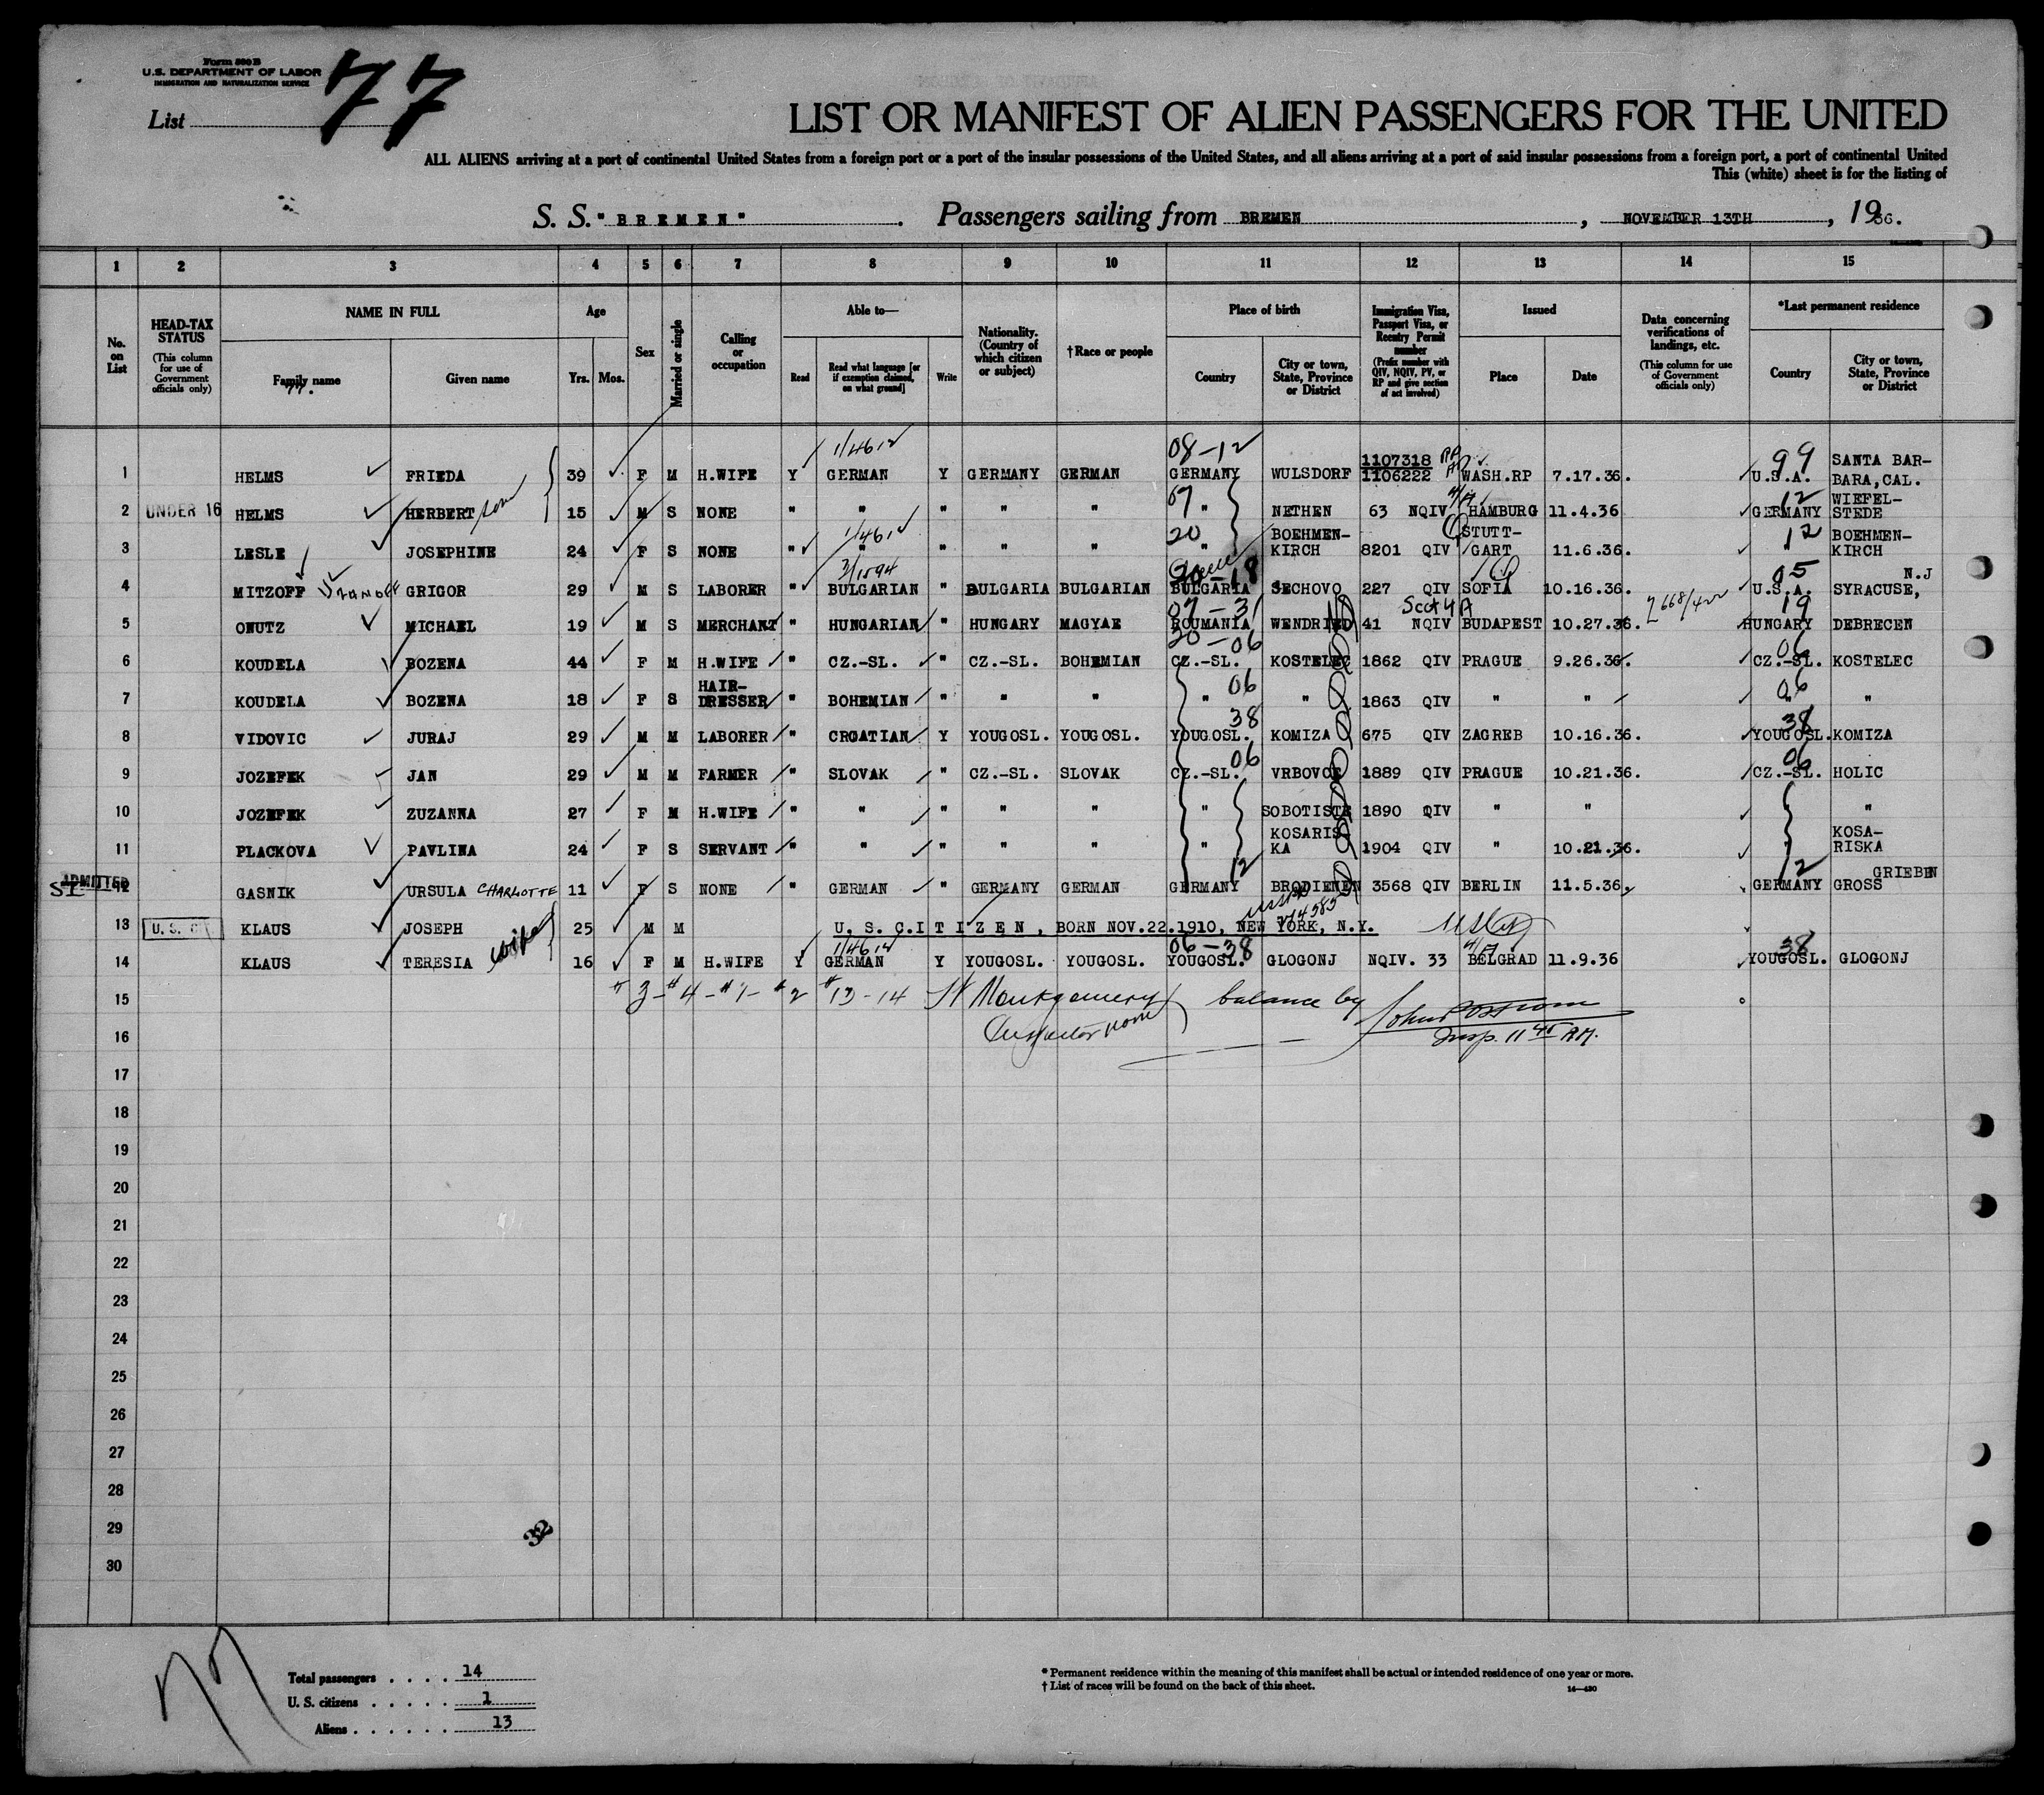 Form 500 B
U.S. DEPARTMENT OF LABOR
IMMIGRATION AND NATURALIZATION SERVICE
List 77
LIST OR MANIFEST OF ALIEN PASSENGERS FOR THE UNITED
ALL ALIENS arriving at a port of continental United States from a foreign port or a port of the insular possessions of the United States, and all aliens arriving at a port of said insular possessions from a foreign port, a port of continental United
This (white) sheet is for the listing of
S. S. "BREMEN". Passengers sailing from BREMEN, NOVEMBER 13TH, 1936.
1 2 3 4 5 6 7 8 9 10 11 12 13 14 15
No. on List
HEAD-TAX STATUS (This column for use of Government officials only)
NAME IN FULL Family name Given name
Age Yrs. Mos.
Sex
Married or single
Calling or occupation
Able to— Read Read what language [or if exemption claimed, on what ground] Write
Nationality. (Country of which citizen or subject)
†Race or people
Place of birth Country City or town, State, Province or District
Immigration Visa, Passport Visa, or Reentry Permit number (Prefix number with QIV, NQIV, PV, or RP and give section of act involved)
Issued Place Date
Data concerning verifications of landings, etc. (This column for use of Government officials only)
*Last permanent residence Country City or town, State, Province or District
1/4612 08-12 1107318 RP 99 SANTA BAR-
1 HELMS FRIEDA 39 F M H.WIFE Y GERMAN Y GERMANY GERMAN GERMANY WULSDORF 1106222 WASH.RP 7.17.36. U.S.A. BARA,CAL.
67 12 WIEFEL-
2 UNDER 16 HELMS HERBERT son 15 M S NONE " " " " " " NETHEN 63 NQIV HAMBURG 11.4.36 GERMANY STEDE
1/4612 20 BOEHMEN- STUTT- 12 BOEHMEN-
3 LESLE JOSEPHINE 24 F S NONE " " " " " " KIRCH 8201 QIV GART 11.6.36. " KIRCH
3/1594 20-18 05 N.J
4 MITZOFF GRIGOR 29 M S LABORER " BULGARIAN " BULGARIA BULGARIAN BULGARIA SECHOVO 227 QIV SOFIA 10.16.36. U.S.A. SYRACUSE,
07-31 Sect 4 A 19
5 ONUTZ MICHAEL 19 M S MERCHANT " HUNGARIAN " HUNGARY MAGYAR ROUMANIA WENDRIED 41 NQIV BUDAPEST 10.27.36. HUNGARY DEBRECEN
20-06 06
6 KOUDELA BOZENA 44 F M H.WIFE " CZ.-SL. " CZ.-SL. BOHEMIAN CZ.-SL. KOSTELEC 1862 QIV PRAGUE 9.26.36. CZ.-SL. KOSTELEC
HAIR- 06 06
7 KOUDELA BOZENA 18 F S DRESSER " BOHEMIAN " " " " " 1863 QIV " " " "
38 38
8 VIDOVIC JURAJ 29 M M LABORER " CROATIAN Y YOUGOSL. YOUGOSL. YOUGOSL. KOMIZA 675 QIV ZAGREB 10.16.36. YOUGOSL. KOMIZA
06 06
9 JOZEFEK JAN 29 M M FARMER " SLOVAK " CZ.-SL. SLOVAK CZ.-SL. VRBOVCE 1889 QIV PRAGUE 10.21.36. CZ.-SL. HOLIC
10 JOZEFEK ZUZANNA 27 F M H.WIFE " " " " " " SOBOTISTE 1890 QIV " " "
KOSARIS- KOSA-
11 PLACKOVA PAVLINA 24 F S SERVANT " " " " " " KA 1904 QIV " 10.21.36. RISKA
ADMITTED 12 12 GRIEBEN
SI 12 GASNIK URSULA CHARLOTTE 11 F S NONE " GERMAN " GERMANY GERMAN GERMANY BRODIENEN 3568 QIV BERLIN 11.5.36. GERMANY GROSS
13 U. S. C KLAUS JOSEPH 25 M M U. S. C.I T I Z E N , BORN NOV.22.1910, NEW YORK, N.Y.
1/4612 06-38 38
14 KLAUS TERESIA wife 16 F M H.WIFE Y GERMAN Y YOUGOSL. YOUGOSL. YOUGOSL. GLOGONJ NQIV. 33 BELGRAD 11.9.36 YOUGOSL. GLOGONJ
15 #3-#4-#1-#2 #13-14 Montgomery balance by
16 Insp. 11 45 AM.
17
18
19
20
21
22
23
24
25
26
27
28
29
32
30
77
Total passengers . . . . 14
U. S. citizens . . . . . 1
Aliens . . . . . . 13
* Permanent residence within the meaning of this manifest shall be actual or intended residence of one year or more.
† List of races will be found on the back of this sheet.
14—430